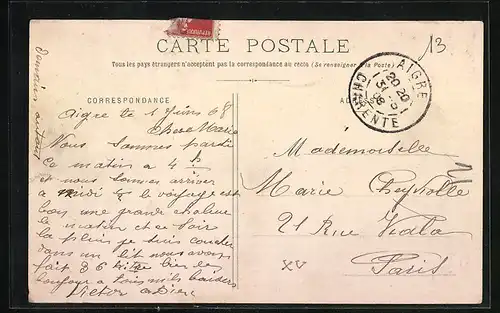 13
CARTE POSTALE
Tous les pays étrangers n'acceptent pas la correspondance au recto (Se renseigner à la Poste)
AIGRE
20 20
31 -5
08
CHARENTE
CORRESPONDANCE
Aigre le 1 Juin 08
Chere Marie
Nous sommes parti
ce matin a 4 h
et nous sommes arriver
a midi le voyage est
bon une grande chaleur
le matin et ce soir
la pluis je suis coucher
dans un lit nous avons
fait 36
bonjour a tous mils baisers
Victor
Mademoiselle
Marie
21 Rue
Paris
XV